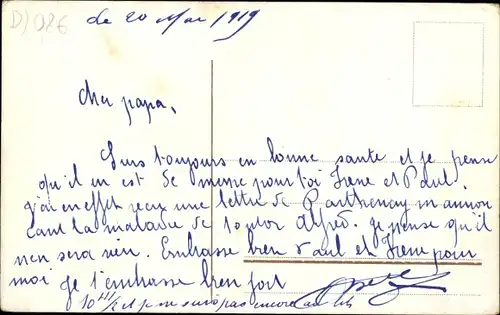 le 20 Mai 1919
Cher papa,
Suis toujours en bonne sante et je pense
qu'il en est de meme pour toi Irene et Paul.
j'ai en effet recu une lettre de Parthenay m'annon
cant la maladie de tonton Alfred. je pense qu'il
n'en sera rien. Embrasse bien Paul et Irene pour
moi je t'embrasse bien fort
10 et je ne suis pas encore au lit